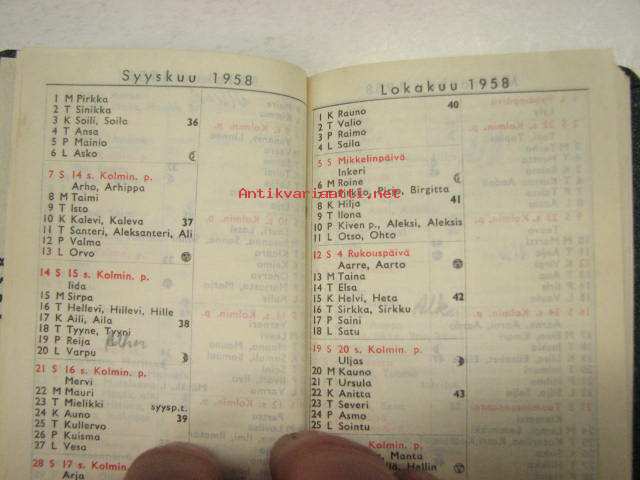 Syyskuu 1958
1 M Pirkka
2 T Sinikka
3 K Soili, Soila 36
4 T Ansa
5 P Mainio
6 L Asko
7 S 14 s. Kolmin. p.
Arho, Arhippa
8 M Taimi
9 T Isto
10 K Kalevi, Kaleva 37
11 T Santeri, Aleksanteri, Ali
12 P Valma
13 L Orvo
14 S 15 s. Kolmin. p.
Iida
15 M Sirpa
16 T Hellevi, Hillevi, Hille
17 K Aili, Aila 38
18 T Tyyne, Tyyni
19 P Reija
20 L Varpu
21 S 16 s. Kolmin. p.
Mervi
22 M Mauri
23 T Mielikki syysp.t.
24 K Auno 39
25 T Kullervo
26 P Kuisma
27 L Vesa
28 S 17 s. Kolmin. p.
Arja
Lokakuu 1958
1 K Rauno 40
2 T Valio
3 P Raimo
4 L Saila
5 S Mikkelinpäivä
Inkeri
6 M Roine
Pirkko, Pirjo, Birgitta
8 K Hilja 41
9 T Ilona
10 P Kiven p., Aleksi, Aleksis
11 L Otso, Ohto
12 S 4 Rukouspäivä
Aarre, Aarto
13 M Taina
14 T Elsa
15 K Helvi, Heta 42
16 T Sirkka, Sirkku
17 P Saini
18 L Satu
19 S 20 s. Kolmin. p.
Uljas
20 M Kauno
21 T Ursula
22 K Anitta 43
23 T Severi
24 P Asmo
25 L Sointu
s. Kolmin. p.
Manta
Hellin
Antikvariaatti.net